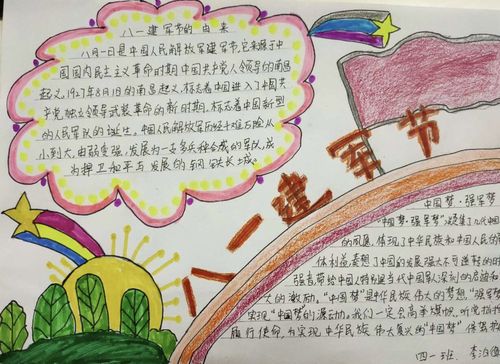 八一建军节的由来
八月一日是中国人民解放军建军节,它来源于中
国国内民主主义革命时期中国共产党人领导的南昌
起义,1927年8月1日的南昌起义,标志着中国进入了中国共
产党独立领导武装革命的新时期,标志着中国新型
的人民军队的诞生。中国人民解放军历经千难万险从
小到大,由弱变强,发展为一支多兵种合成的军队,成
为捍卫和平与发展的钢铁长城。
八一建军节
中国梦·强军梦
"中国梦·强军梦"凝集了几代中国
的夙愿,体现了中华民族和中国人民的
体利益,表明了中国的发展强大不可逆转的时
强音,带给中国人特别是当代中国军人深刻的启
大的激励。"中国梦"是中华民族伟大的梦想,"强军梦
实现"中国梦"的源动力。我们一定会高举旗帜,听党指挥
履行使命,为实现中华民族伟大复兴的"中国梦"保驾
四一班 李